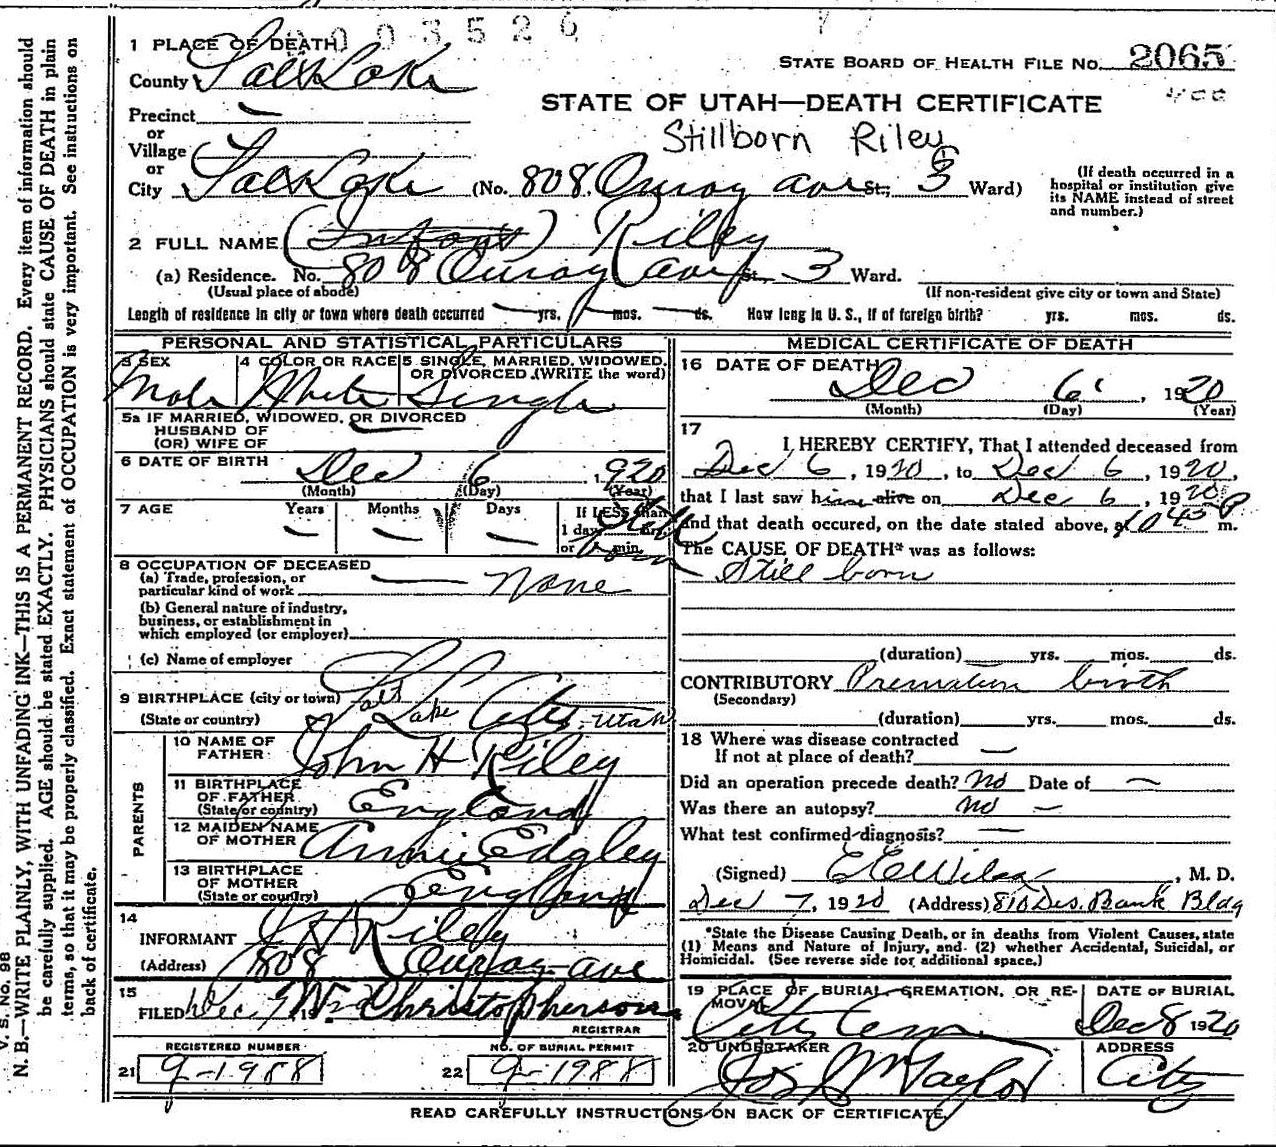 0003526
1 PLACE OF DEATH
STATE BOARD OF HEALTH FILE NO. 2065
County Salt Lake
400
STATE OF UTAH—DEATH CERTIFICATE
Precinct —
Stillborn Riley
or
Village
or
City Salt Lake (No. 808 Ouray ave St; 3 Ward)
(If death occurred in a hospital or institution give its NAME instead of street and number.)
2 FULL NAME (Infant) Riley
(a) Residence. No. 808 Ouray ave St. 3 Ward.
(Usual place of abode)
(If non-resident give city or town and State)
Length of residence in city or town where death occurred — yrs. — mos. — ds. How long in U. S., if of foreign birth? yrs. mos. ds.
PERSONAL AND STATISTICAL PARTICULARS
3 SEX
Male
4 COLOR OR RACE
White
5 SINGLE, MARRIED, WIDOWED, OR DIVORCED (WRITE the word)
Single
5a IF MARRIED, WIDOWED, OR DIVORCED
HUSBAND OF
(OR) WIFE OF
—
6 DATE OF BIRTH Dec 6 1920
(Month) (Day) (Year)
7 AGE Years — Months — Days —
If LESS than
1 day hrs.
or min.
Still born
8 OCCUPATION OF DECEASED
(a) Trade, profession, or
particular kind of work — None
(b) General nature of industry,
business, or establishment in
which employed (or employer)
(c) Name of employer
9 BIRTHPLACE (city or town)
(State or country)
Salt Lake City, Utah
PARENTS
10 NAME OF
FATHER
John H Riley
11 BIRTHPLACE
OF FATHER
(State or country)
England
12 MAIDEN NAME
OF MOTHER
Annie Edgley
13 BIRTHPLACE
OF MOTHER
(State or country)
England
14
INFORMANT J H Riley
(Address) 808 Ouray ave
15
FILED Dec 7 19 Wm Christophersons
REGISTRAR
REGISTERED NUMBER
21 9-1988
NO. OF BURIAL PERMIT
22 9-1988
MEDICAL CERTIFICATE OF DEATH
16 DATE OF DEATH
Dec 6, 1920
(Month) (Day) (Year)
17
I HEREBY CERTIFY, That I attended deceased from
Dec 6, 1920, to Dec 6, 1920,
that I last saw him alive on Dec 6, 1920
and that death occured, on the date stated above, at 1045 P m.
The CAUSE OF DEATH* was as follows:
Still born
(duration) yrs. mos. ds.
CONTRIBUTORY Premature birth
(Secondary)
(duration) yrs. mos. ds.
18 Where was disease contracted
If not at place of death? —
Did an operation precede death? No Date of —
Was there an autopsy? No —
What test confirmed diagnosis? —
(Signed) E E Wilcox, M. D.
Dec 7, 1920 (Address) 810 Des. Bank Bldg
*State the Disease Causing Death, or in deaths from Violent Causes, state
(1) Means and Nature of Injury, and (2) whether Accidental, Suicidal, or
Homicidal. (See reverse side for additional space.)
19 PLACE OF BURIAL, CREMATION, OR RE-
MOVAL
City Cem
DATE OF BURIAL
Dec 8 1920
20 UNDERTAKER
Jos Wm Taylor
ADDRESS
City
READ CAREFULLY INSTRUCTIONS ON BACK OF CERTIFICATE.
V. S. No. 98
N. B.—WRITE PLAINLY, WITH UNFADING INK—THIS IS A PERMANENT RECORD. Every item of information should
be carefully supplied. AGE should be stated EXACTLY. PHYSICIANS should state CAUSE OF DEATH in plain
terms, so that it may be properly classified. Exact statement of OCCUPATION is very important. See instructions on
back of certificate.